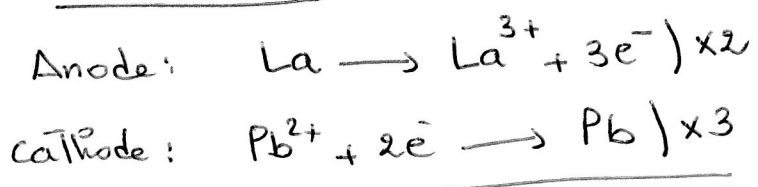 Anode: La → La³⁺ + 3e⁻) ×2
Cathode: Pb²⁺ + 2e⁻ → Pb) ×3